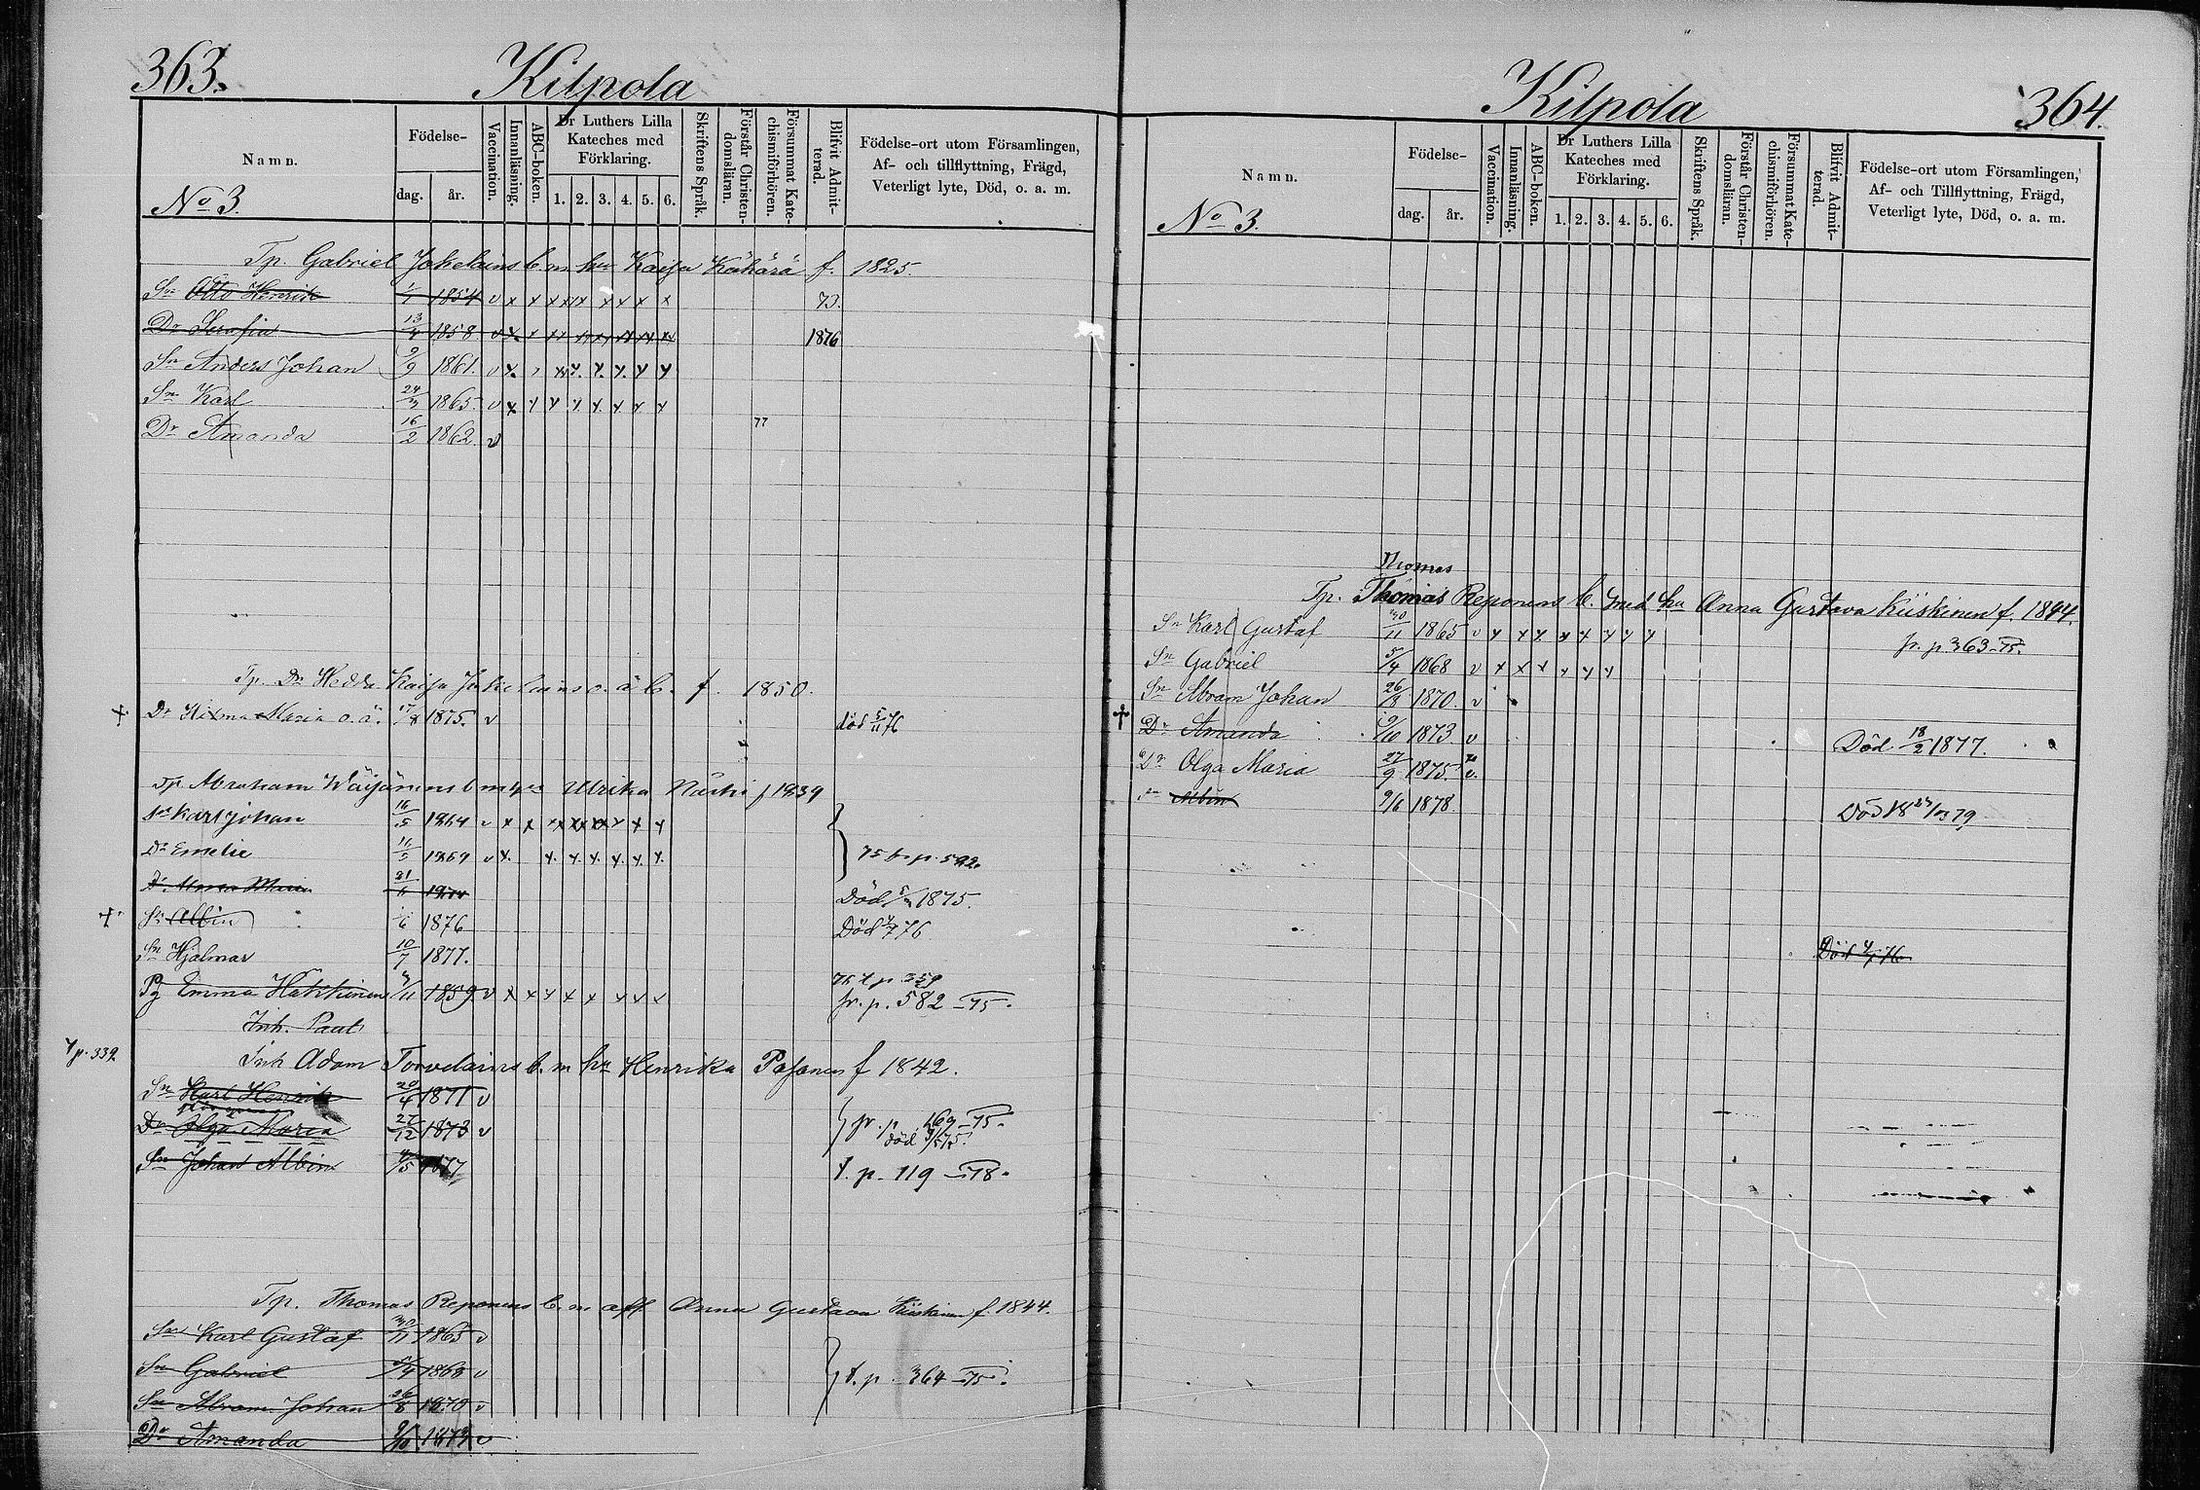 363.
Kilpola
Namn.
Födelse-
dag.
år.
Vaccination.
Innanläsning.
ABC-boken.
Dr Luthers Lilla Kateches med Förklaring.
1. 2. 3. 4. 5. 6.
Skriftens Språk.
Förstår Christendomsläran.
Försummat Katechismiförhören.
Blifvit Admitterad.
Födelse-ort utom Församlingen,
Af- och tillflyttning, Frägd,
Veterligt lyte, Död, o. a. m.
No 3.
Tp. Gabriel Jokelains b. m. hu Kaisa Kähärä f. 1825.
Sn Otto Henrik 1/1 1854 v x x x x x x x x x 73.
Dr Serafia 13/4 1858 v x x x x x x x x 1876
Sn Anders Johan 9/9 1861. v x x x x x x x
Sn Karl 24/3 1865. v x x x x x x x x
Dr Amanda 16/2 1862 v 77
Tp. Dr Hedda Kaisa Jokelains o. ä. b. f. 1850.
+ Dr Hilma Maria o. ä. 17/8 1875. v död 5/11 76
Tp. Abraham Wäisänens b m hu Ulrika f 1839
Sn Karl Johan 16/5 1864 v x x x x x x x x
Dr Emelie 11/5 1869 v x x x x x x x 75 fr. p. 592.
Maria 21/ Död 1875.
+ Sn Albin /6 1876 Död 76
Sn Hjalmar 10/7 1877.
Pg Emma Häkkinen /11 1859 v x x x x x x x x 75 t p 359
fr. p. 582 – 75.
Inh. Paul
t p. 339
Inh Adam Torvelains b. m hu Henrika Pasanen f 1842.
Sn Karl Henrik 20/4 1871 v
Dr Olga Maria 27/12 1873 v fr. p. 169 – 75.
död 75.
Sn Johan Albin /5 1877 t. p. 119 – 78.
Tp. Thomas Reponens b. m aff Anna Gustava Kiiskinen f. 1844.
Sn Karl Gustaf 30/11 1865 v
Sn Gabriel 5/4 1868 v t. p. 364 – 75.
Sn Abram Johan 26/8 1870 v
Dr Amanda 9/10 1873 v
Kilpola
364.
Namn.
Födelse-
dag.
år.
Vaccination.
Innanläsning.
ABC-boken.
Dr Luthers Lilla Kateches med Förklaring.
1. 2. 3. 4. 5. 6.
Skriftens Språk.
Förstår Christendomsläran.
Försummat Katechismiförhören.
Blifvit Admitterad.
Födelse-ort utom Församlingen,
Af- och Tillflyttning, Frägd,
Veterligt lyte, Död, o. a. m.
No 3.
Thomas
Tp. Thomas Reponens b. med hu Anna Gustava Kiiskinen f. 1844.
Sn Karl Gustaf 30/11 1865 v x x x x x x x x
fr. p 363 – 75.
Sn Gabriel 5/4 1868 v x x x x x x
Sn Abram Johan 26/8 1870. v
+ Dr Amanda 9/10 1873 v Död 18/2 1877.
Dr Olga Maria 27/9 1875. v.
Sn Albin 9/6 1878. Död 79
Död 4/7 76